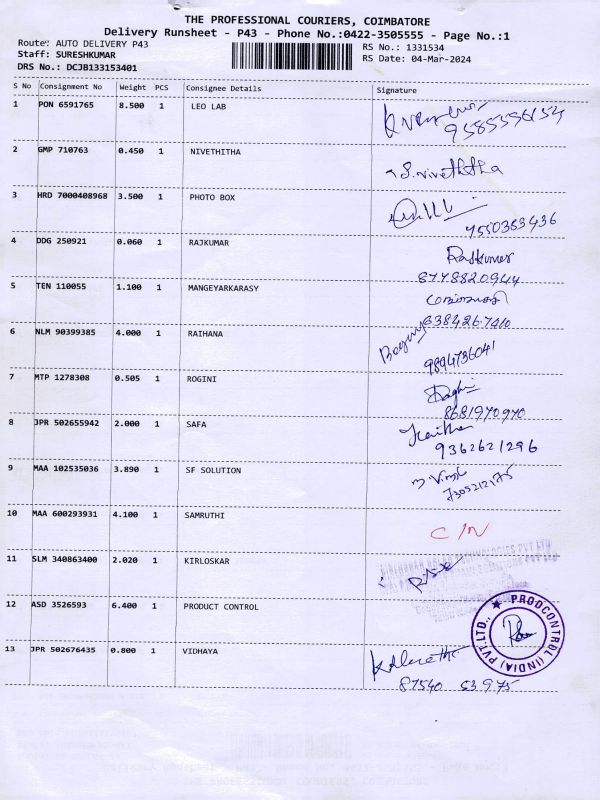 THE PROFESSIONAL COURIERS, COIMBATORE
Delivery Runsheet - P43 - Phone No.:0422-3505555 - Page No.:1
Route: AUTO DELIVERY P43
Staff: SURESHKUMAR
DRS No.: DCJB133153401
RS No.: 1331534
RS Date: 04-Mar-2024
S No Consignment No Weight PCS Consignee Details Signature
1 PON 6591765 8.500 1 LEO LAB
9585556154
2 GMP 710763 0.450 1 NIVETHITHA S.nivethitha
3 HRD 7000408968 3.500 1 PHOTO BOX
7550383436
4 DDG 250921 0.060 1 RAJKUMAR Rajkumar
8778820944
5 TEN 110055 1.100 1 MANGEYARKARASY
6384267410
6 NLM 90399385 4.000 1 RAIHANA
9894736041
7 MTP 1278308 0.505 1 ROGINI
8681970970
8 JPR 502655942 2.000 1 SAFA
9362621296
9 MAA 102535036 3.890 1 SF SOLUTION
7305212175
10 MAA 600293931 4.100 1 SAMRUTHI C/N
11 SLM 340863400 2.020 1 KIRLOSKAR
12 ASD 3526593 6.400 1 PRODUCT CONTROL
★ PRODCONTROL (INDIA) PVT.LTD.,
13 JPR 502676435 0.800 1 VIDHAYA
87540 53975